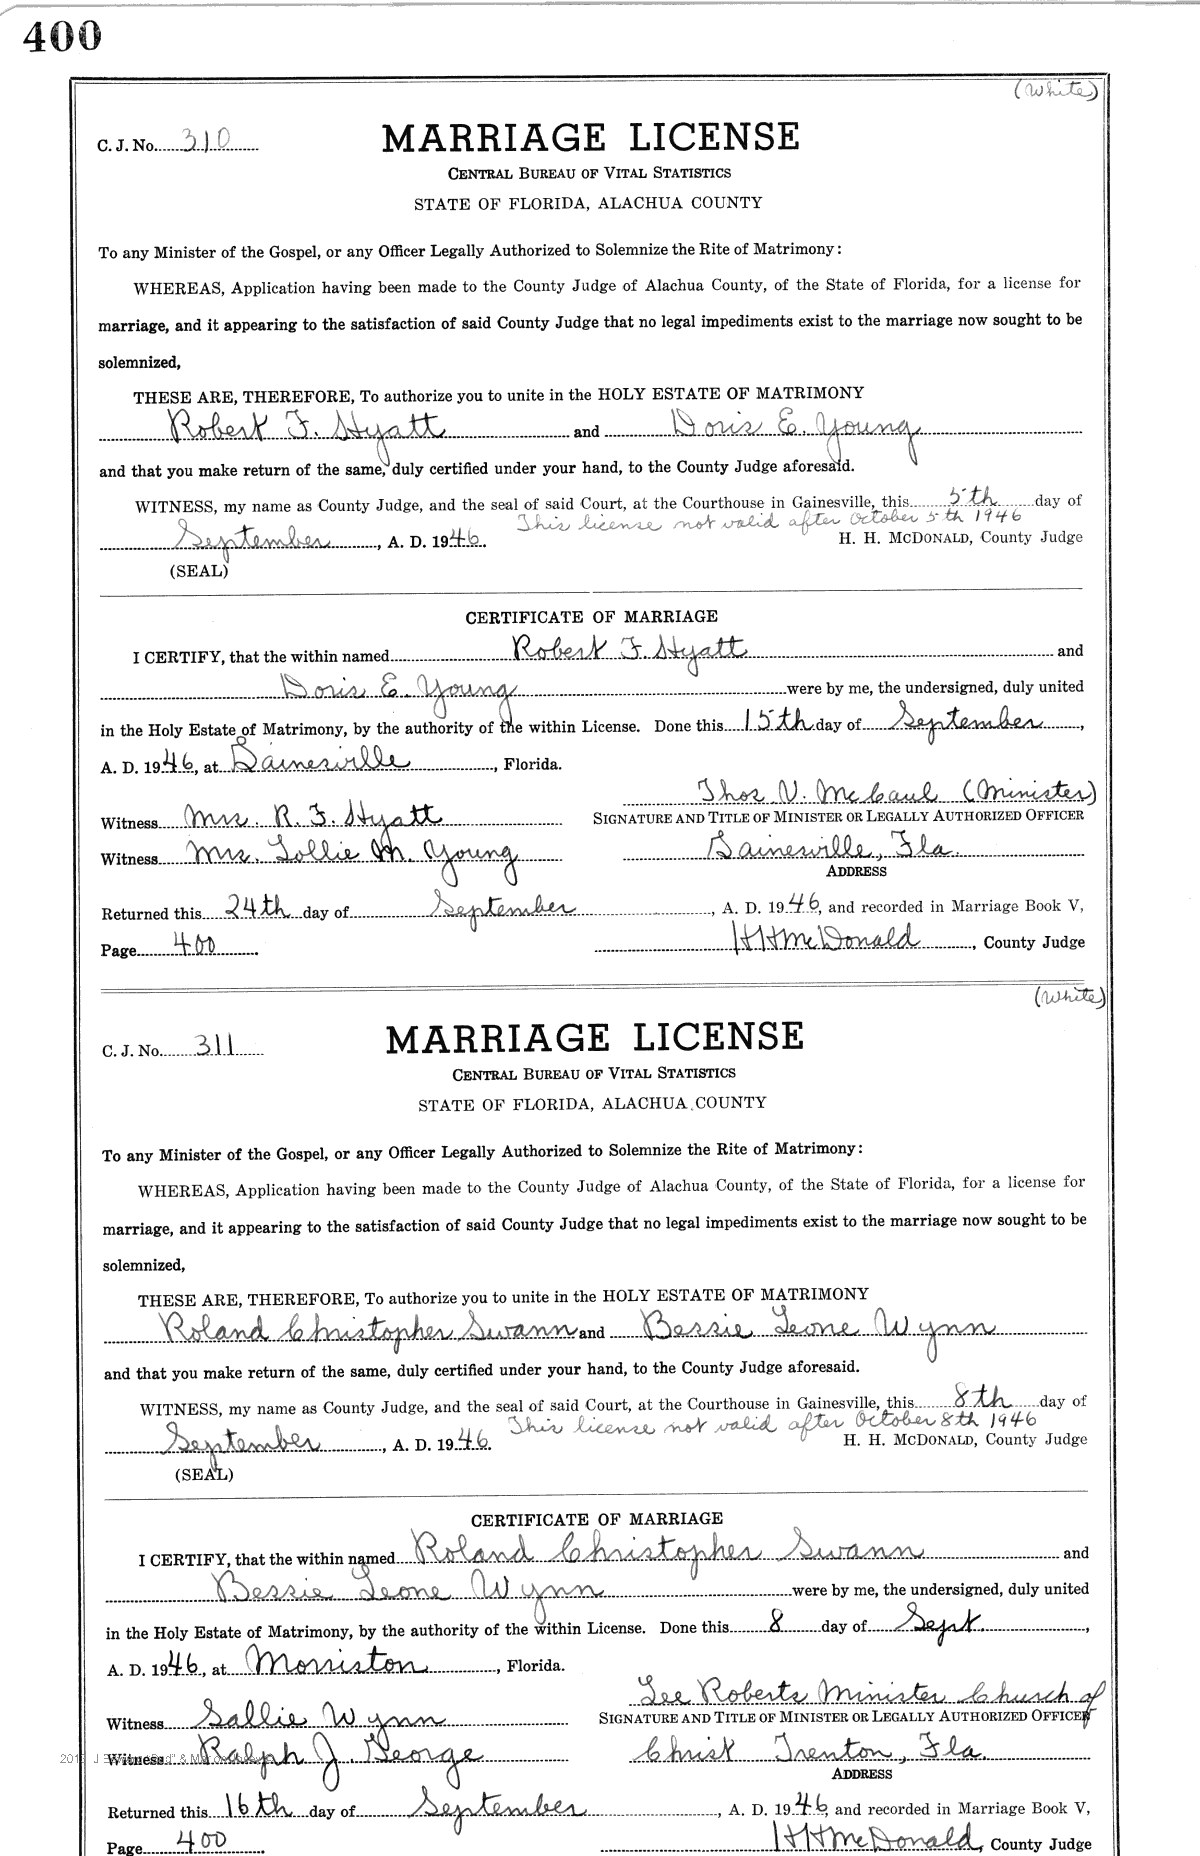 400
(White)
C. J. No. 310
MARRIAGE LICENSE
CENTRAL BUREAU OF VITAL STATISTICS
STATE OF FLORIDA, ALACHUA COUNTY
To any Minister of the Gospel, or any Officer Legally Authorized to Solemnize the Rite of Matrimony:
WHEREAS, Application having been made to the County Judge of Alachua County, of the State of Florida, for a license for
marriage, and it appearing to the satisfaction of said County Judge that no legal impediments exist to the marriage now sought to be
solemnized,
THESE ARE, THEREFORE, To authorize you to unite in the HOLY ESTATE OF MATRIMONY
Robert F. Hyatt and Doris E. Young
and that you make return of the same, duly certified under your hand, to the County Judge aforesaid.
WITNESS, my name as County Judge, and the seal of said Court, at the Courthouse in Gainesville, this 5th day of
This license not valid after October 5th 1946
September, A. D. 1946. H. H. MCDONALD, County Judge
(SEAL)
CERTIFICATE OF MARRIAGE
I CERTIFY, that the within named Robert F. Hyatt and
Doris E. Young were by me, the undersigned, duly united
in the Holy Estate of Matrimony, by the authority of the within License. Done this 15th day of September,
A. D. 1946, at Gainesville, Florida.
Thos V. McCaul (Minister)
Witness Mrs. R. F. Hyatt SIGNATURE AND TITLE OF MINISTER OR LEGALLY AUTHORIZED OFFICER
Witness Mrs. Lollie M. Young Gainesville, Fla.
ADDRESS
Returned this 24th day of September, A. D. 1946, and recorded in Marriage Book V,
Page 400 H H McDonald, County Judge
(White)
C. J. No. 311
MARRIAGE LICENSE
CENTRAL BUREAU OF VITAL STATISTICS
STATE OF FLORIDA, ALACHUA COUNTY
To any Minister of the Gospel, or any Officer Legally Authorized to Solemnize the Rite of Matrimony:
WHEREAS, Application having been made to the County Judge of Alachua County, of the State of Florida, for a license for
marriage, and it appearing to the satisfaction of said County Judge that no legal impediments exist to the marriage now sought to be
solemnized,
THESE ARE, THEREFORE, To authorize you to unite in the HOLY ESTATE OF MATRIMONY
Roland Christopher Swann and Bessie Leone Wynn
and that you make return of the same, duly certified under your hand, to the County Judge aforesaid.
WITNESS, my name as County Judge, and the seal of said Court, at the Courthouse in Gainesville, this 8th day of
This license not valid after October 8th 1946
September, A. D. 1946. H. H. MCDONALD, County Judge
(SEAL)
CERTIFICATE OF MARRIAGE
I CERTIFY, that the within named Roland Christopher Swann and
Bessie Leone Wynn were by me, the undersigned, duly united
in the Holy Estate of Matrimony, by the authority of the within License. Done this 8 day of Sept.,
A. D. 1946, at Morriston, Florida.
Lee Roberts Minister Church of
Witness Sallie Wynn SIGNATURE AND TITLE OF MINISTER OR LEGALLY AUTHORIZED OFFICER
Witness Ralph J. George Christ Trenton, Fla.
ADDRESS
Returned this 16th day of September, A. D. 1946, and recorded in Marriage Book V,
Page 400 H H McDonald, County Judge